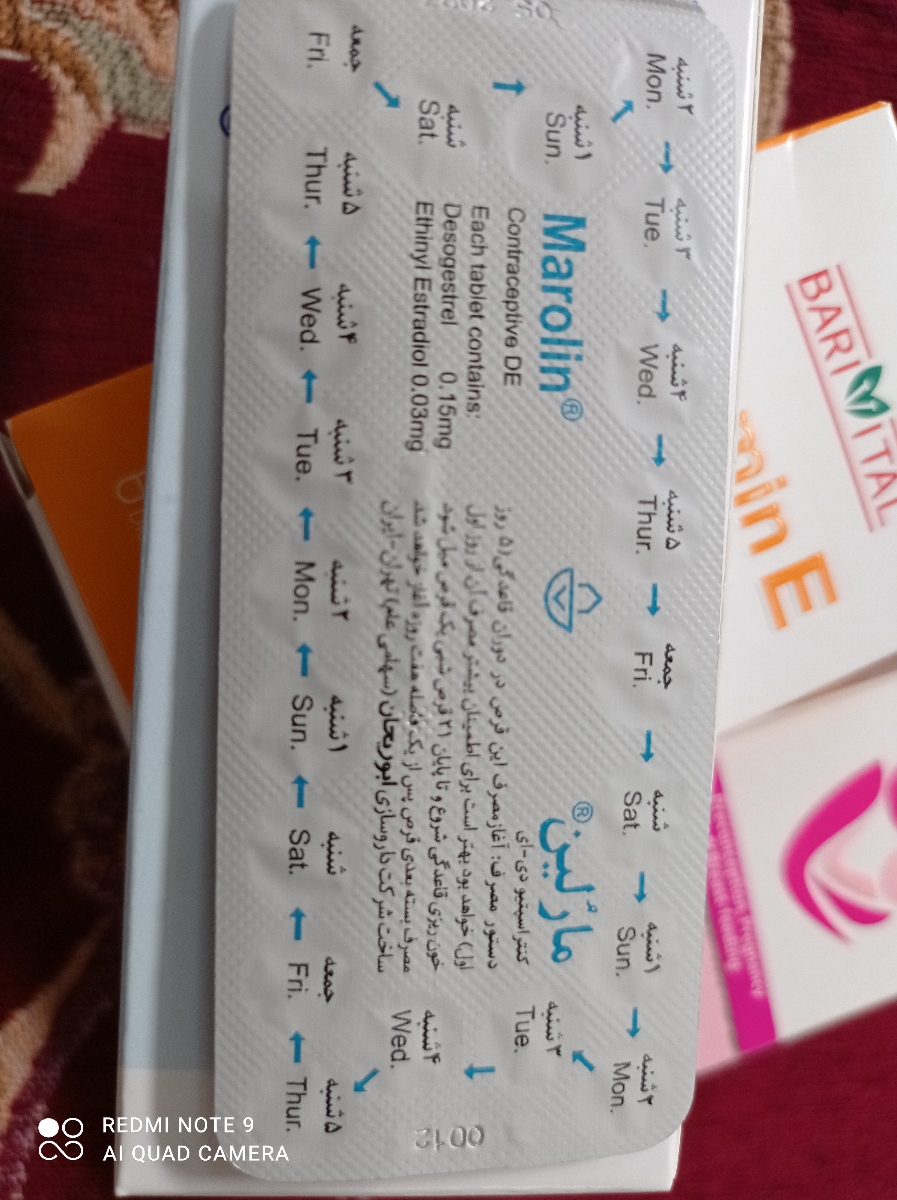 ۲شنبه
Mon.
۳شنبه
Tue.
۴شنبه
Wed.
۵شنبه
Thur.
جمعه
Fri.
شنبه
Sat.
۱شنبه
Sun.
۲شنبه
Mon.
۱شنبه
Sun.
شنبه
Sat.
Marolin®
Contraceptive DE
Each tablet contains:
Desogestrel 0.15mg
Ethinyl Estradiol 0.03mg
مارُلین®
کنتراسپتیو دی-ای
دستور مصرف: آغاز مصرف این قرص در دوران قاعدگی (۵ روز
اول) خواهد بود بهتر است برای اطمینان بیشتر مصرف آن از روز اول
خون ریزی قاعدگی شروع و تا پایان ۲۱ قرص شبی یک قرص میل شود
مصرف بسته بعدی قرص پس از یک فاصله هفت روزه آغاز خواهد شد
ساخت شرکت داروسازی ابوریحان (سهامی عام) تهران-ایران
۳شنبه
Tue.
۴شنبه
Wed.
جمعه
Fri.
۵شنبه
Thur.
۴شنبه
Wed.
۳شنبه
Tue.
۲شنبه
Mon.
۱شنبه
Sun.
شنبه
Sat.
جمعه
Fri.
۵شنبه
Thur.
0012
BARI VITAL
min E
REDMI NOTE 9
AI QUAD CAMERA